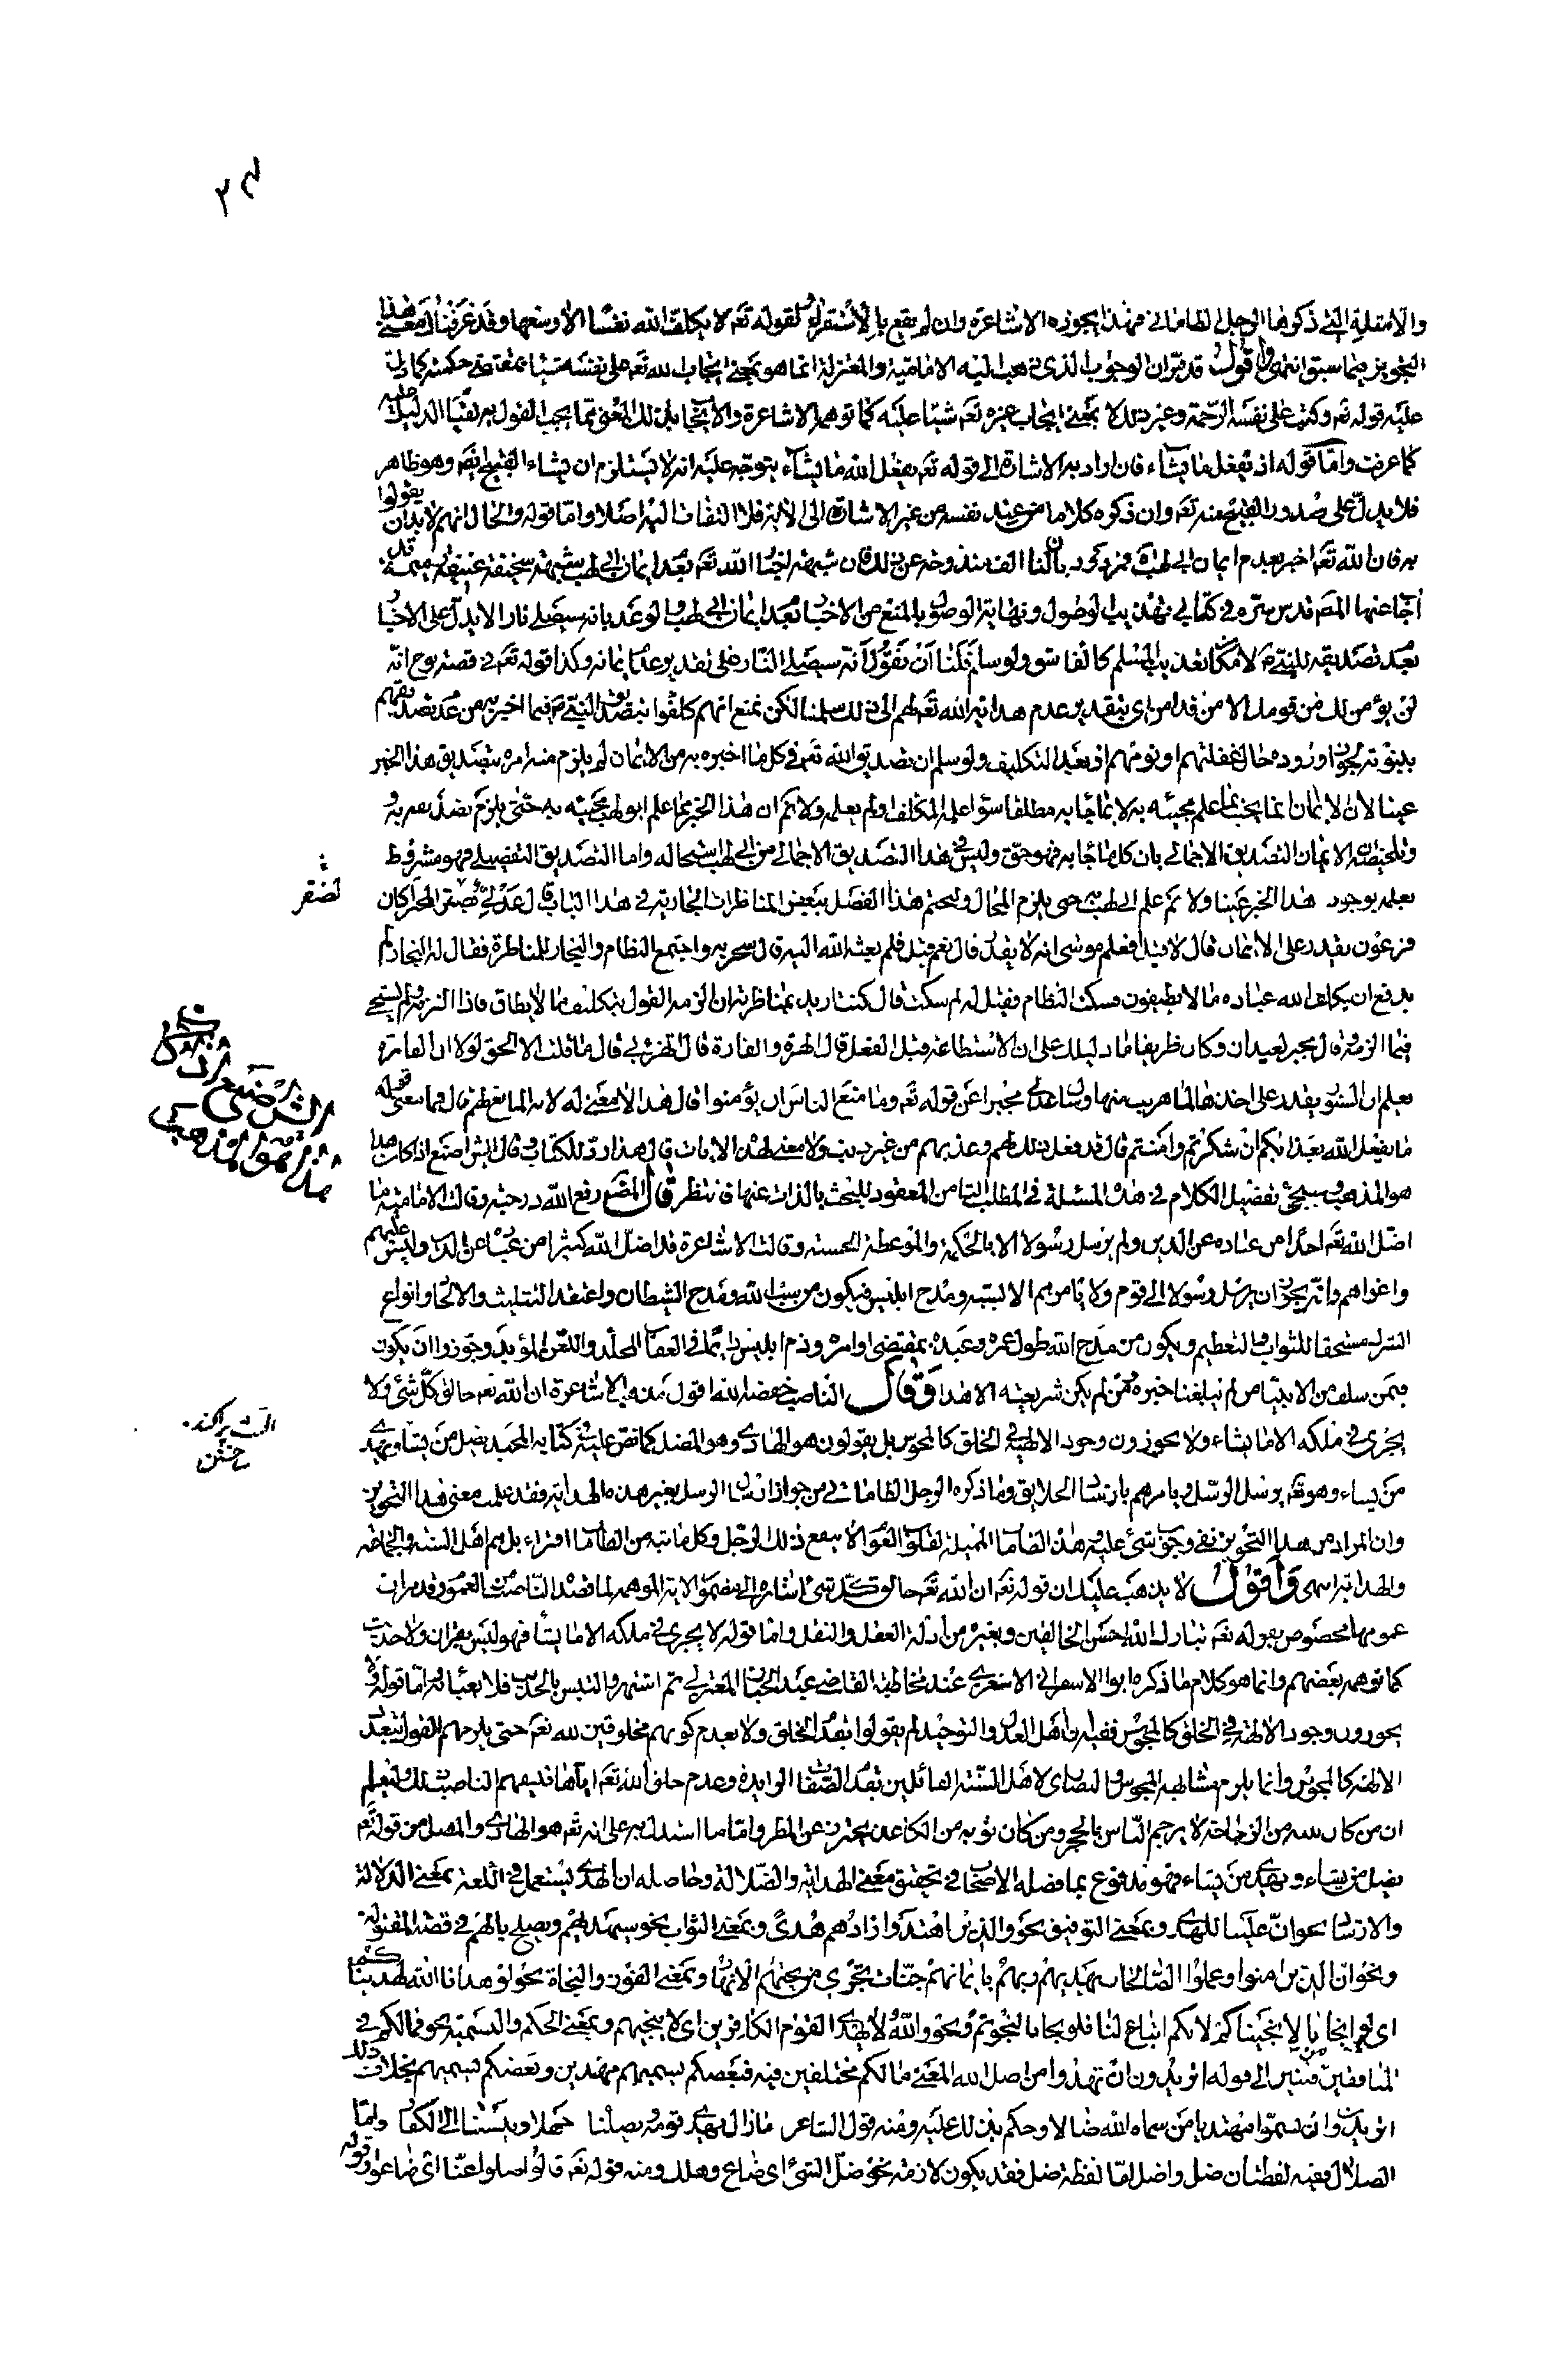 والامثلة التي ذكرها الرجل الطاماتي فهذا يجوزه الاشاعرة وان لم يقع بالاستقراء لقوله تعه لا يكلف الله نفسا الا وسعها وقد عرفناك معنى هذا
التجويز فيما سبق انتهى واقول قد مر ان الوجوب الذي ذهب اليه الامامية والمعتزلة انما هو بمعنى ايجاب الله تعه على نفسه شيئا بمقتضى حكمته كما دل
عليه قوله تعه وكتب على نفسه الرحمة وغير ذلك لا بمعنى ايجاب غيره تعه شيئا عليه كما توهمه الاشاعرة والايجاب بذلك المعنى مما يجب القول به لقيام الدليل عليه
كما عرفت واما قوله اذ يفعل ما يشاء فان اراد به الاشارة الى قوله تعه يفعل الله ما يشاء يتوجه عليه انه لا يستلزم ان يشاء القبيح ايضا وهو ظاهر
فلا يدل على صدور القبيح منه تعه وان ذكره كلاما من عند نفسه من غير الاشارة الى الاية فلا التفات اليه اصلا واما قوله والحال انهم لابد ان يقولوا
به فان الله تعه اخبر بعدم ايمان ابي لهب
اجاب عنها المصه قدس سره في كتابي تهذيب الوصول ونهاية الوصول بالمنع من الاخبار بعدم ايمان ابي لهب والوعد بانه سيصلى نارا لا يدل على الاخبار
بعدم تصديقه للنبي ص لامكان تعذيب المسلم كالفاسق ولو سلم فلنا ان نقول انه سيصلى النار على تقدير عدم ايمانه وكذا قوله تعه في قصة نوح انه
لن يؤمن من قومك الا من قد امن اي بتقدير عدم هداية الله تعه لهم الى ذلك سلمنا لكن نمنع انهم كلفوا بتصديق النبي ص فيما اخبر به من عدم تصديقهم
بنبوته لجواز وروده حال غفلتهم او نومهم او بعد التكليف ولو سلم ان تصديق الله تعه في كل ما اخبر به من الايمان لم يلزم منه امره بتصديق هذا الخبر
عينا لان الايمان انما يجب بما علم مجيئه به لا بما جاء به مطلقا سواء علمه المكلف او لم يعلمه ولا نم ان هذا الخبر مما علم ابو لهب مجيئه به حتى يلزم تصديقه به
وتلخيصه ان الايمان التصديق الاجمالي بان كل ما جاء به فهو حق وليس في هذا التصديق الاجمالي من ابي لهب استحالة واما التصديق التفصيلي فهو مشروط
بعلمه بوجود هذا الخبر عينا ولا نم علم ابي لهب به حتى يلزم المحال ولنختم هذا الفصل ببعض المناظرات الجارية في هذا الباب قال عدلي لمجبر اكان
فرعون يقدر على الايمان قال لا قيل افعلم موسى انه لا يقدر قال نعم قيل فلم بعثه الله اليه قال سخر به واجتمع النظام والنجار للمناظرة فقال له النجار لم
يدفع ان يكلف الله عباده ما لا يطيقون فسكت النظام فقيل له لم سكت قال كنت اريد بمناظرته ان الزمه القول بتكليف ما لا يطاق فاذا التزمه ولم يستحي
فبما الزمه وقال مجبر لعبدان وكان ظريفا ما دليلك على ان الاستطاعة قبل الفعل قال الهرة والفارة قال اتهزء بي قال ما قلت الا الحق لولا ان الفارة
يعلم ان السنور يقدر على اخذها لما هربت منها وسال عدلي مجبرا عن قوله تعه وما منع الناس ان يؤمنوا قال هذا لا معنى له لانه المانع لهم قال فما معنى قوله
ما يفعل الله بعذابكم ان شكرتم وامنتم قال قد فعل ذلك بهم وعذبهم من غير ذنب ولا معنى لهذه الايات قال هذا رد للكتاب قال ايش اصنع اذا كان هذا
هو المذهب وسيجئ تفصيل الكلام في هذه المسئلة في المطلب الثامن المعقود للبحث بالذات عنها فانتظر قال المصنف رفع الله درجته وقالت الامامية ما
اضل الله تعه احدا من عباده عن الدين ولم يرسل رسولا الا بالحكمة والموعظة الحسنة وقالت الاشاعرة قد اضل الله كثيرا من عباده عن الدين ولبس عليهم
واغواهم وانه يجوز ان يرسل رسولا الى قوم ولا يامرهم الا بسبه ومدح ابليس فيكون من سب الله ومدح الشيطان واعتقد التثليث والالحاد وانواع
الشرك مستحقا للثواب والتعظيم ويكون من مدح الله طول عمره وعبده بمقتضى اوامره وذم ابليس دائما في العقاب المخلد واللعن المؤبد وجوزوا ان يكون
فيمن سلف من الانبياء من لم يبلغنا خبره ممن لم يكن شريعته الا هذا وقال الناصب خفضه الله اقول مذهب الاشاعرة ان الله تعه خالق كل شئ ولا
يجري في ملكه الا ما يشاء ولا يجوزون وجود الالهة في الخلق كالمجوس بل يقولون هو الهادي وهو المضل كما نص عليه في كتابه المجيد يضل من يشاء ويهدي
من يشاء وهو تعه يرسل الرسل ويامرهم بارشاد الخلايق وما ذكره الرجل الطاماتي من جواز ارسال الرسل بغير هذه الهداية فقد علمت معنى هذا التجويز
وان المراد من هذا التجويز نفي وجوب شئ عليه وهذه الطامات المميلة لقلوب العوام لا ينفع ذلك الرجل وكل ما بثه من الطامات افتراء بل هم اهل السنة والجماعة
والهداية انتهى واقول لا يذهب عليك ان قوله تعه ان الله تعه خالق كل شئ اشارة الى مضمون الاية الموهمة لما قصده الناصب من العموم وقد مر ان
عمومها مخصوص بقوله تعه تبارك الله احسن الخالقين وبغيره من ادلة العقل والنقل واما قوله لا يجري في ملكه الا ما يشاء فهو ليس بقران ولا حديث
كما توهمه بعضهم وانما هو كلام ما ذكره ابو الاسفرايني الاشعري عند مخاطبة القاضي عبد الجبار المعتزلي ثم اشتهر والتبس بالحديث فلا يعبأ به واما قوله لا
يجوزون وجود الالهة في الخلق كالمجوس ففيه ان اهل العدل والتوحيد لم يقولوا بقدم الخلق ولا بعدم كونهم مخلوقين لله تعه حتى يلزمهم القول بتعدد
الالهة كالمجوس وانما يلزم مشابهة المجوس والنصارى لاهل السنة القائلين بقدم الصفات الزايدة وعدم خلق الله تعه اياها فليفهم الناصب ذلك وليعلم
ان من كان بيته من الزجاجة لا يرجم الناس بالحجر ومن كان ثوبه من الكاغذ يحترز عن المطر واما ما استدل به على انه تعه هو الهادي والمضل من قوله تعه
يضل من يشاء ويهدي من يشاء فهو مدفوع بما فصله الاصحاب في تحقيق معنى الهداية والضلالة وحاصله ان الهدى يستعمل في اللغة بمعنى الدلالة
والارشاد نحو ان علينا للهدى وبمعنى التوفيق نحو والذين اهتدوا زادهم هدى وبمعنى الثواب نحو سيهديهم ويصلح بالهم في قصة المقتولين
ونحو ان الذين امنوا وعملوا الصالحات يهديهم ربهم بايمانهم جنات تجري من تحتهم الانهار وبمعنى الفوز والنجاة نحو لو هدانا الله لهديناكم
اي لو انجانا لانجيناكم لانكم اتباع لنا فلو نجانا لنجوتم ونحو والله لا يهدي القوم الكافرين اي لا ينجيهم وبمعنى الحكم والتسمية نحو فمالكم في
المنافقين فئتين الى قوله اتريدون ان تهدوا من اضل الله المعنى ما لكم مختلفين فيه فبعضكم يسميهم مهتدين وبعضكم يسميهم بخلاف ذلك
اتريدون ان تسموا مهتديا من سماه الله ضالا وحكم بذلك عليه ومنه قول الشاعر ما زال يهدي قومه ويضلنا جهلا وينسبنا الى الكفار واما
الضلال ففيه لفظتان ضل واضل اما لفظة ضل فقد يكون لازمة نحو ضل الشئ اي ضاع وهلك ومنه قوله تعه قالوا ضلوا عنا اي ضاعوا وقوله